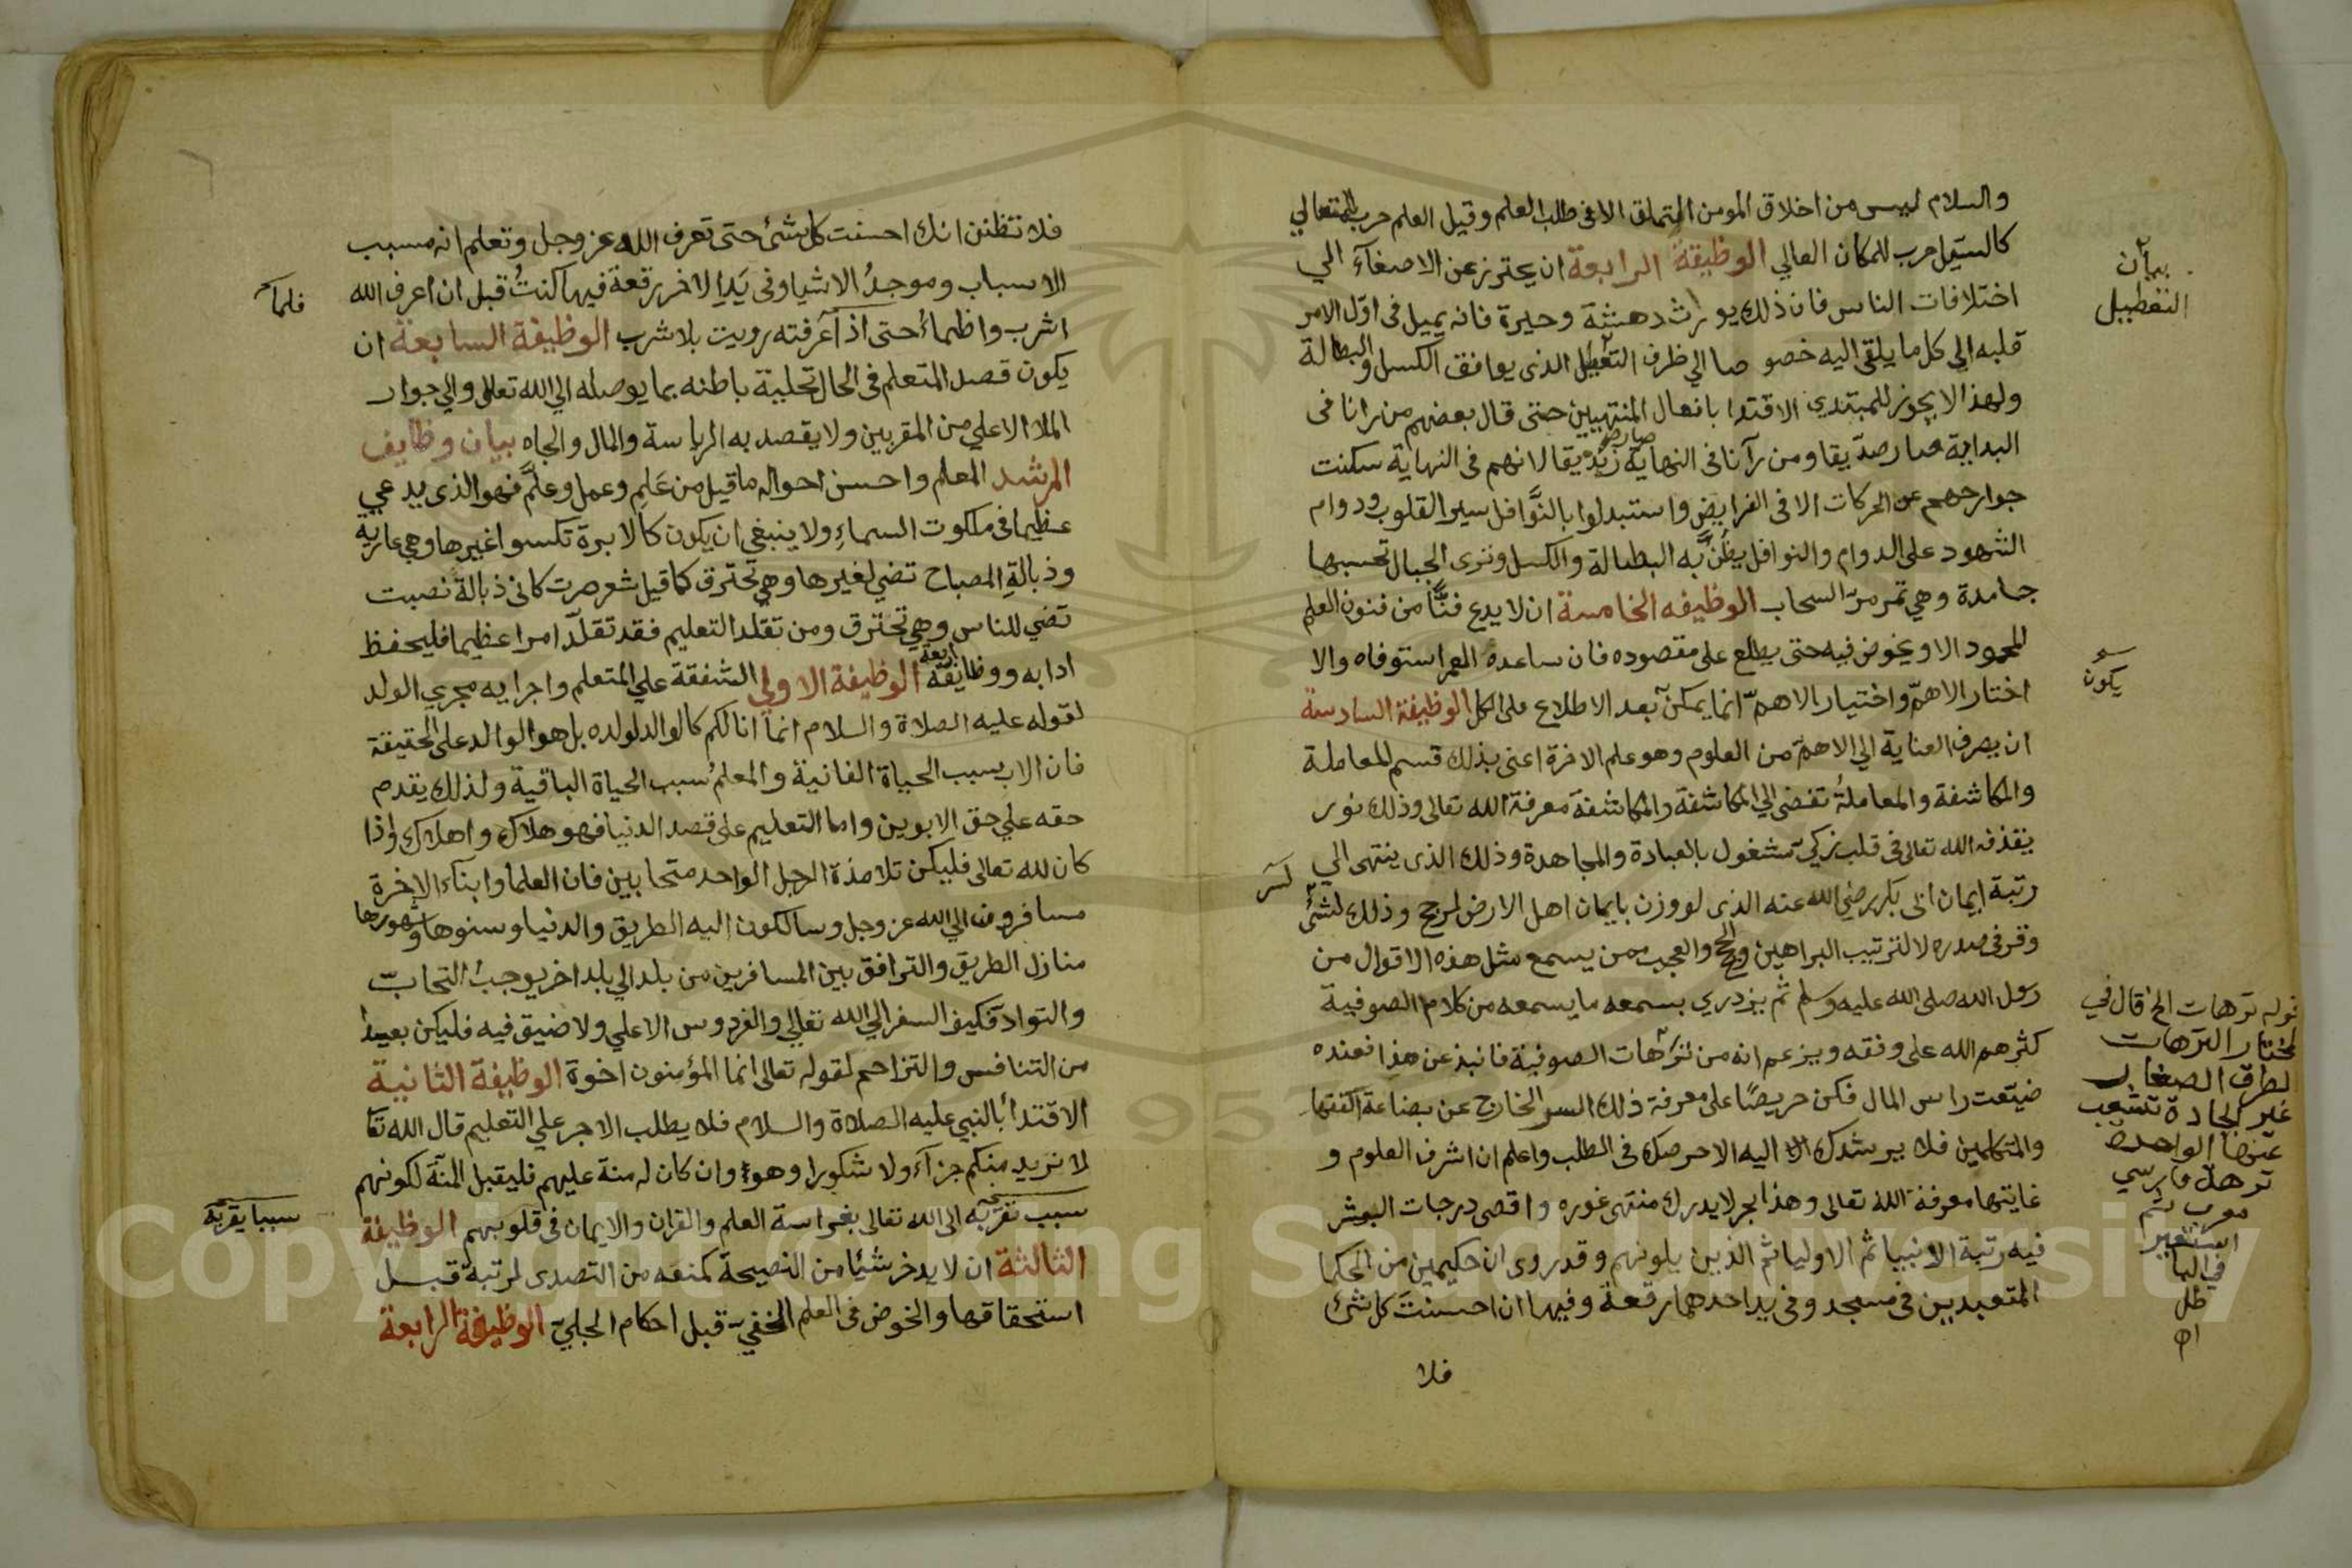 والسلام ليس من اخلاق المومن التملق الا فى طلب العلم وقيل العلم حرب للمتعالي
كالسيل حرب للمكان العالي الوظيفة الرابعة ان يحترز عن الاصغآء الي
اختلافات الناس فان ذلك يورث دهشة وحيرة فانه يميل فى اول الامر
قلبه الي كل ما يلقى اليه خصوصا الي طرف التعطيل الذى يوافق الكسل والبطالة
ولهذا لا يجوز للمبتدي الاقتدا بافعال المنتهيين حتى قال بعضهم من رانا فى
البداية صار صدّيقا ومن رآنا فى النهاية صار زنديقا لانهم فى النهاية سكنت
جوارحهم عن الحركات الا فى الفرايض واستبدلوا بالنَّوافل سير القلوب ودوام
الشهود على الدوام والنوافل يظُنُّ به البطالة والكسل وترى الجبال تحسبها
جامدة وهي تمر مرّ السحاب الوظيفه الخامسة ان لا يدع فنًّا من فنون العلم
المحمود الا ويخوض فيه حتى يطلع على مقصوده فان ساعده العمر استوفاه والا
اختار الاهمّ واختيار الاهمّ انما يمكن بعد الاطلاع على الكل الوظيفة السادسة
ان يصرف العناية الي الاهمّ من العلوم وهو علم الاخرة اعنى بذلك قسم المعاملة
والمكاشفة والمعاملةُ تفضى الي المكاشفة والمكاشفة معرفة الله تعالى وذلك نور
يقذفه الله تعالى فى قلب زكيّ مشغول بالعبادة والمجاهدة وذلك الذى ينتهى الي
رتبة ايمان ابى بكر رضي الله عنه الذى لو وزن بايمان اهل الارض لرجح وذلك لشئ
وقر فى صدره لا لترتيب البراهين والحجج والعجب ممن يسمع مثل هذه الاقوال من
رسول الله صلى الله عليه وسلم ثم يزدري بسمعه ما يسمعه من كلام الصوفية
كثرهم الله على وفقه ويزعم انه من ترّهات الصوفية فانبذ عن هذا فعنده
ضيّعت راس المال فكن حريصًا على معرفة ذلك السر الخارج عن بضاعة الفقها
والمتكلمين فلا يرشدك اليه الا حرصك فى الطلب واعلم ان اشرف العلوم و
غايتها معرفة الله تعالى وهذا بحر لا يدرك منتهى غوره واقصى درجات البشر
فيه رتبة الانبيا ثم الاوليا ثم الذين يلونهم وقد روى ان حكيمين من الحكما
المتعبدين فى مسجد وفى يد احدهما رقعة وفيها ان احسنتَ كل شئ
فلا
بيان
التعطيل
يكون
قوله ترهات الخ قال في
المختار الترهات
الطرق الصغار
غير الجادة تتشعب
عنها الواحدة
ترهة فارسي
معرب ثم
استعير
في البا
طل
اه
فلا تظنن انك احسنت كل شئ حتى تعرف الله عز وجل وتعلم انه مسبب
الاسباب وموجدُ الاشيا وفى يَدِ الاخر رقعة فيها كنتُ قبل ان اعرف الله
اشرب واظمأ حتى اذا عرفته رويت بلا شرب الوظيفة السابعة ان
يكون قصد المتعلم فى الحال تحلية باطنه بما يوصله الي الله تعالى والي جوار
الملا الاعلي من المقربين ولا يقصد به الرياسة والمال والجاه بيان وظايف
المرشد المعلم واحسن احواله ما قيل من عَلِم وعمل وعلَّم فهو الذى يدعي
عظيما فى ملكوت السماءِ ولا ينبغي ان يكون كالابرة تكسوا غيرها وهي عارية
وذبالةِ المصباح تضي لغيرها وهي تحترق كما قيل شعر صرت كانى ذبالة نصبت
تضي للناس وهي تحترق ومن تقلد التعليم فقد تقلّد امرا عظيما فليحفظ
ادابه ووظايفه اربعة الوظيفة الاولي الشفقة علي المتعلم واجرايه مجري الولد
لقوله عليه الصلاة والسلام انما انا لكم كالوالد لولده بل هو الوالد على الحقيقة
فان الاب سبب الحياة الفانية والمعلمُ سبب الحياة الباقية ولذلك يقدم
حقه علي حق الابوين واما التعليم على قصد الدنيا فهو هلاك واهلاك واذا
كان لله تعالى فليكن تلامذة الرجل الواحد متحابين فان العلما وابناء الاخرة
مسافرون الي الله عز وجل وسالكون اليه الطريق والدنيا وسنوها وشهورها
منازل الطريق والترافق بين المسافرين من بلد الي بلد اخر يوجبُ التحابّ
والتوادّ فكيف السفر الي الله تعالي والفردوس الاعلي ولا ضيق فيه فليكن بعيدا
من التنافس والتزاحم لقوله تعالى انما المؤمنون اخوة الوظيفة الثانية
الاقتدأ بالنبي عليه الصلاة والسلام فلا يطلب الاجر علي التعليم قال الله تعا
لا نريد منكم جزآء ولا شكورا وهو وان كان له منة عليهم فليقبل المنّة لكونهم
سبب تقرّبه الى الله تعالى بغراسة العلم والقران والايمان فى قلوبهم الوظيفة
الثالثة ان لا يدخر شيًا من النصيحة كمنعه من التصدى لرتبة قبل
استحقاقها والخوض فى العلم الخفيّ قبل احكام الجليّ الوظيفة الرابعة
فلما
سببا يقربه
Copyright © King Saud University